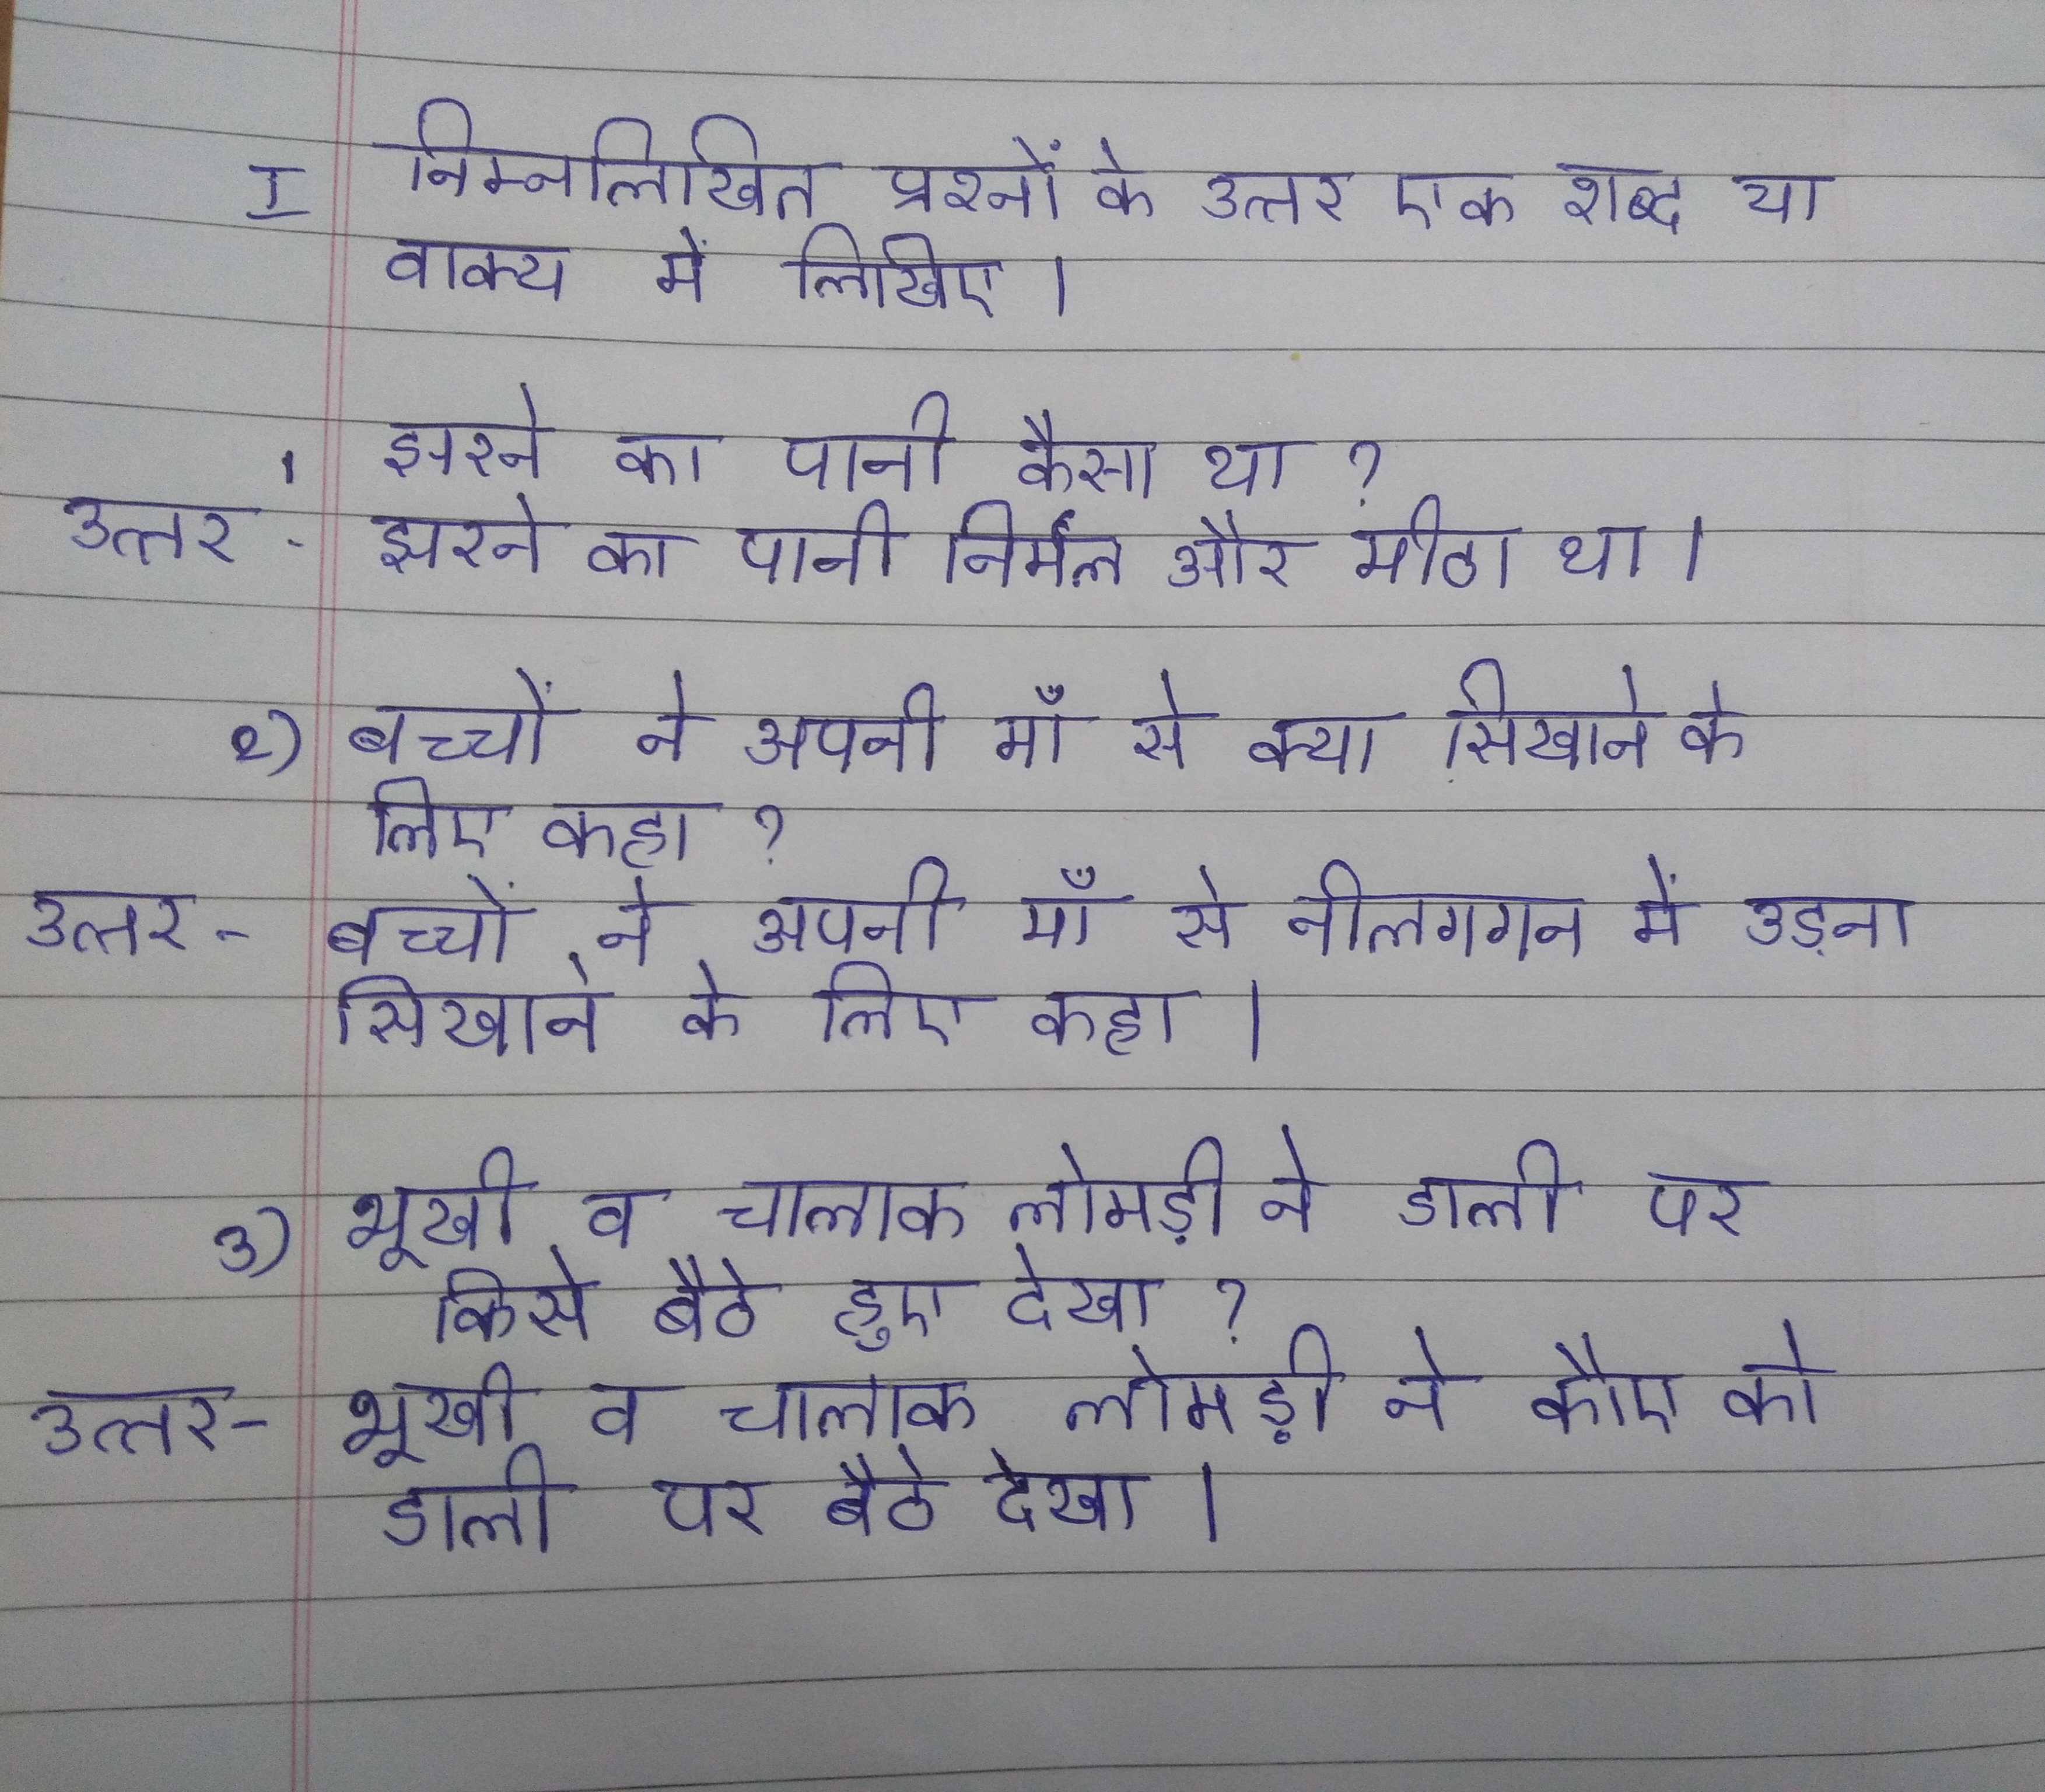 I निम्नलिखित प्रश्नों के उत्तर एक शब्द या
वाक्य में लिखिए।
1 झरने का पानी कैसा था ?
उत्तर - झरने का पानी निर्मल और मीठा था।
2) बच्चों ने अपनी माँ से क्या सिखाने के
लिए कहा ?
उत्तर - बच्चों ने अपनी माँ से नीलगगन में उड़ना
सिखाने के लिए कहा।
3) भूखी व चालाक लोमड़ी ने डाली पर
किसे बैठे हुए देखा ?
उत्तर - भूखी व चालाक लोमड़ी ने कौए को
डाली पर बैठे देखा।